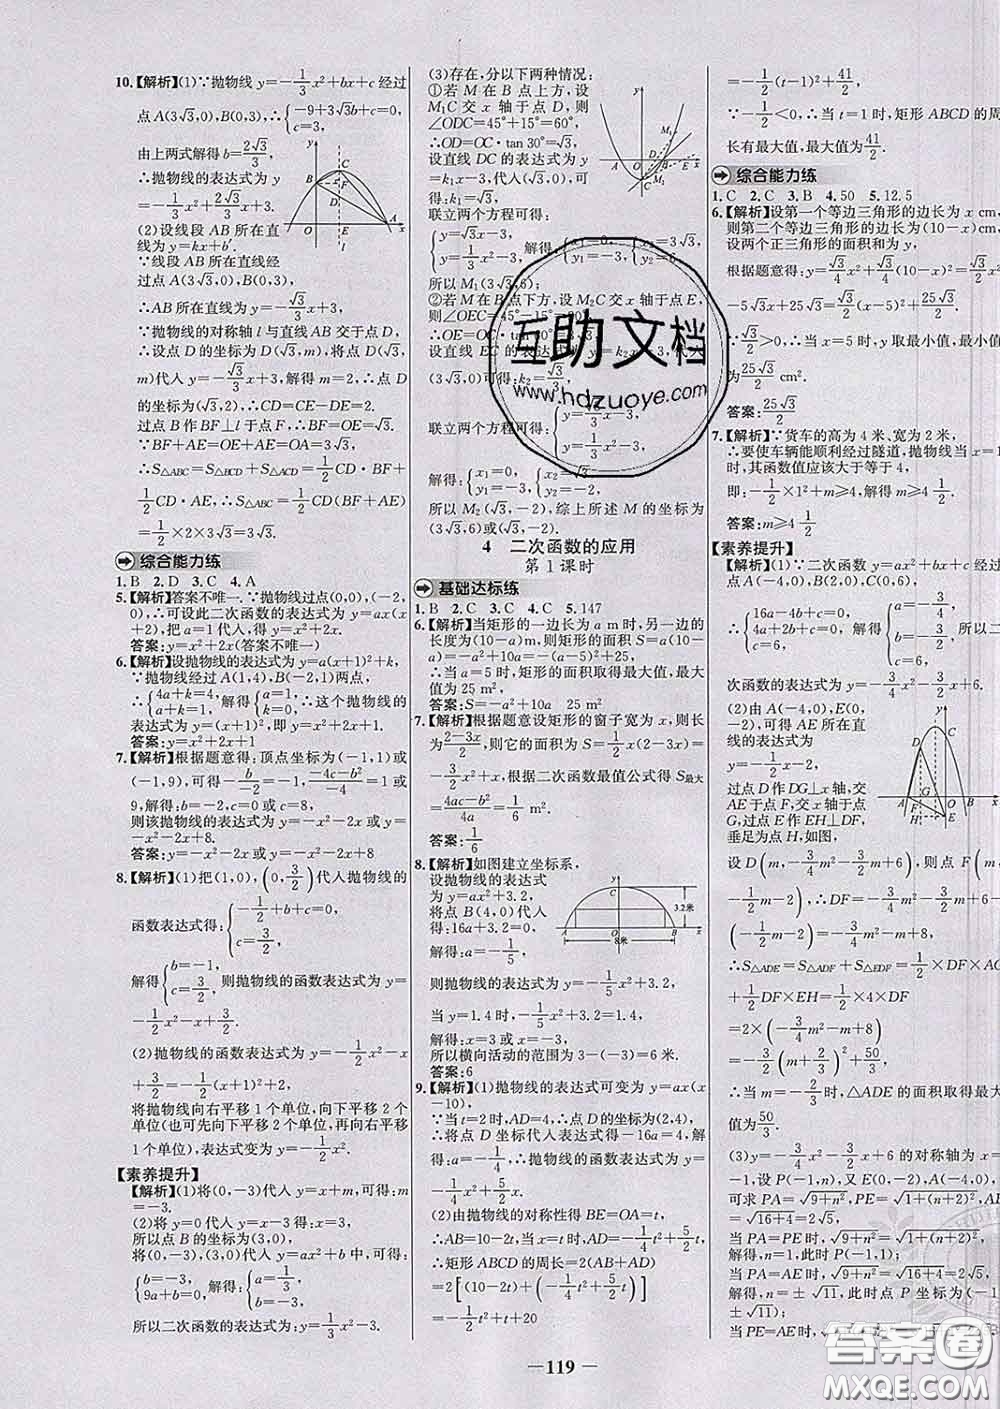 10.【解析】(1)∵抛物线 y=-1/3x²+bx+c 经过
点 A(3√3,0),B(0,3),∴{-9+3√3b+c=0, c=3,
由上两式解得 b=2√3/3.
∴抛物线的表达式为 y
=-1/3x²+2√3/3x+3.
(2)设线段 AB 所在直
线为 y=kx+b′.
∵线段 AB 所在直线经
过点 A(3√3,0),B(0,3),
∴AB 所在直线为 y=-√3/3x+3,
∵抛物线的对称轴 l 与直线 AB 交于点 D,
∴设点 D 的坐标为 D(√3,m),将点 D(√3,
m)代入 y=-√3/3x+3,解得 m=2,∴点 D
的坐标为(√3,2),∴CD=CE-DE=2.
过点 B 作 BF⊥l 于点 F,∴BF=OE=√3.
∵BF+AE=OE+AE=OA=3√3,
∴S△ABC=S△BCD+S△ACD=1/2CD·BF+
1/2CD·AE,∴S△ABC=1/2CD(BF+AE)
=1/2×2×3√3=3√3.
综合能力练
1.B 2.D 3.C 4.A
5.【解析】答案不唯一.∵抛物线过点(0,0),(-2,
0),∴可设此二次函数的表达式为 y=ax(x
+2),把 a=1代入,得 y=x²+2x.
答案:y=x²+2x(答案不唯一)
6.【解析】设抛物线的表达式为 y=a(x+1)²+k,
∵抛物线经过 A(1,4),B(-2,1)两点,
∴{4a+k=4, a+k=1,解得:{a=1, k=0,∴这个抛物线的
表达式为 y=(x+1)²,即 y=x²+2x+1.
答案:y=x²+2x+1
7.【解析】根据题意得:顶点坐标为(-1,1)或
(-1,9),可得-b/-2=-1,(-4c-b²)/-4=1或
9,解得:b=-2,c=0;b=-2,c=8,
则该抛物线的表达式为 y=-x²-2x或 y=
-x²-2x+8.
答案:y=-x²-2x或 y=-x²-2x+8
8.【解析】(1)把(1,0),(0,3/2)代入抛物线的
函数表达式得:{-1/2+b+c=0, c=3/2,
解得{b=-1, c=3/2,则抛物线的函数表达式为 y=
-1/2x²-x+3/2.
(2)抛物线的函数表达式为 y=-1/2x²-x
+3/2=-1/2(x+1)²+2,
将抛物线向右平移1个单位,向下平移2个
单位(也可先向下平移2个单位,再向右平
移1个单位),表达式变为 y=-1/2x².
【素养提升】
【解析】(1)将(0,-3)代入 y=x+m,可得:m
=-3.
(2)将 y=0代入 y=x-3得:x=3,
所以点 B 的坐标为(3,0),
将(0,-3),(3,0)代入 y=ax²+b中,可得:
{b=-3, 9a+b=0,解得:{a=1/3, b=-3,
所以二次函数的表达式为 y=1/3x²-3.
(3)存在,分以下两种情况:
①若 M 在 B 点上方,设
M₁C 交 x 轴于点 D,则
∠ODC=45°+15°=60°,
∴OD=OC·tan 30°=√3,
设直线 DC 的表达式为
y=k₁x-3,代入(√3,0)可得:k₁=√3,
联立两个方程可得:
{y=√3x-3, y=1/3x²-3,解得:{x₁=0, y₁=-3,{x₂=3√3, y₂=6,
所以 M₁(3√3,6);
②若 M 在 B 点下方,设 M₂C 交 x 轴于点 E,
则∠OEC=45°-15°=30°,
∴OE=OC·tan 60°=3√3,
设直线 EC 的表达式为 y=k₂x-3,代入
(3√3,0)可得:k₂=√3/3,
联立两个方程可得:{y=√3/3x-3, y=1/3x²-3,
解得:{x₁=0, y₁=-3,{x₂=√3, y₂=-2,
所以 M₂(√3,-2),综上所述 M 的坐标为
(3√3,6)或(√3,-2).
4 二次函数的应用
第1课时
基础达标练
1.B 2.C 3.C 4.C 5.147
6.【解析】当矩形的一边长为 a m时,另一边的
长度为(10-a)m,则矩形的面积 S=a(10
-a)=-a²+10a=-(a-5)²+25,
∴当 a=5时,矩形的面积取得最大值,最大
值为25 m²,
答案:S=-a²+10a 25 m²
7.【解析】根据题意设矩形的窗子宽为 x,则长
为(2-3x)/2,则它的面积 S=1/2x(2-3x)=-
3/2x²+x,根据二次函数最值公式得 S最大
=(4ac-b²)/4a=1/6 m².
答案:1/6
8.【解析】如图建立坐标系,
设抛物线的表达式
为 y=ax²+3.2,
将点 B(4,0)代入
得:16a+3.2=0,
解得:a=-1/5,
则抛物线的表达式为 y=-1/5x²+3.2,
当 y=1.4时,-1/5x²+3.2=1.4,
解得:x=3或 x=-3,
所以横向活动的范围为3-(-3)=6米.
答案:6
9.【解析】(1)抛物线的表达式可变为 y=ax(x
-10),
∵当 t=2时,AD=4,∴点 D 的坐标为(2,4),
∴将点 D 坐标代入表达式得-16a=4,解
得:a=-1/4,∴抛物线的表达式为 y=-1/4x²
+5/2x;
(2)由抛物线的对称性得 BE=OA=t,
∴AB=10-2t,当 x=t时,AD=-1/4t²+5/2t,
∴矩形 ABCD 的周长=2(AB+AD)
=2[(10-2t)+(-1/4t²+5/2t)]
=-1/2t²+t+20
=-1/2(t-1)²+41/2,
∵-1/2<0,∴当 t=1时,矩形 ABCD 的周
长有最大值,最大值为41/2.
综合能力练
1.C 2.C 3.B 4.50 5.12.5
6.【解析】设第一个等边三角形的边长为 x cm,
则第二个等边三角形的边长为(10-x)cm,
设两个正三角形的面积和为 y,
根据题意得:y=√3/4x²+√3/4(10-x)²=√3/2x²
-5√3x+25√3=√3/2(x-5)²+25√3/2.
∵√3/2>0,∴当 x=5时,y取最小值,最小值
为25√3/2 cm².
答案:25√3/2
7.【解析】∵货车的高为4米、宽为2米,
∴要使车辆能顺利经过隧道,抛物线当 x=1
时,其函数值应该大于等于4,
即:-1/2×1²+m≥4,解得:m≥4 1/2.
答案:m≥4 1/2
【素养提升】
【解析】(1)∵二次函数 y=ax²+bx+c 经过
点 A(-4,0),B(2,0),C(0,6),
∴{16a-4b+c=0, 4a+2b+c=0, c=6,解得:所以二
次函数的表达式为 y=-3/4x²-3/2x+6.
(2)由 A(-4,0),E(0,
-2),可得 AE 所在直
线的表达式为
y=-1/2x-2,
过点 D 作 DG⊥x 轴,交
AE 于点 F,交 x 轴于点
G,过点 E 作 EH⊥DF,
垂足为点 H,如图,
设 D(m,-3/4m²-3/2m+6),则点 F(m,-
1/2m-2),∴DF=-3/4m²-3/2m+6-
(-1/2m-2)=-3/4m²-m+8,
∴S△ADE=S△ADF+S△EDF=1/2×DF×AG
+1/2DF×EH=1/2×4×DF
=2×(-3/4m²-m+8)
=-3/2(m+2/3)²+50/3,
∴当 m=-2/3时,△ADE 的面积取得最大
值为50/3.
(3)y=-3/4x²-3/2x+6的对称轴为 x=
-1,设 P(-1,n),又 E(0,-2),A(-4,0),
可求 PA=√(9+n²),PE=√(1+(n+2)²),AE
=√(16+4)=2√5,
当 PA=PE 时,√(9+n²)=√(1+(n+2)²),
解得,n=1,此时 P(-1,1);
当 PA=AE 时,√(9+n²)=√(16+4)=2√5,
解得,n=±√11,此时点 P 坐标为(-1,
±√11);
当 PE=AE 时,
互助文档
www.hdzuoye.com
答案圈
MXQE.COM
119